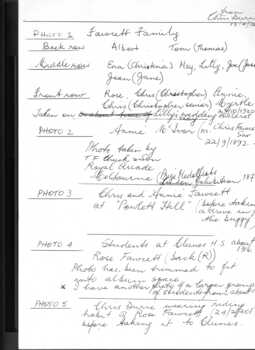 from
PHOTO 1 Fawcett Family
Back row Albert Tom (Thomas)
Middle row Eva (Christina) May, Lilly, Jim
Jean (Jane)
Front row Rose, Chris (Christopher) Annie,
Chris (Christopher senior) Myrtle
Taken on Lilly's wedding
PHOTO 2 Annie Mc Ivor (m. Chris Fawcett
22/9/1892.
Photo taken by
T F Chuck & Son
Royal Arcade
Melbourne (Prize Medallists
London Exhibition 187
PHOTO 3 Chris and Annie Fawcett
at (before taken
a drive in
the buggy)
PHOTO 4 Students at Clunes H.S about
Rose Fawcett (back (R))
Photo has been trimmed to fit
into album space
I have another photo of a larger group
of students about
PHOTO 5 Chris Durre wearing riding
habit of Rose Fawcett
before taking it to Clunes.